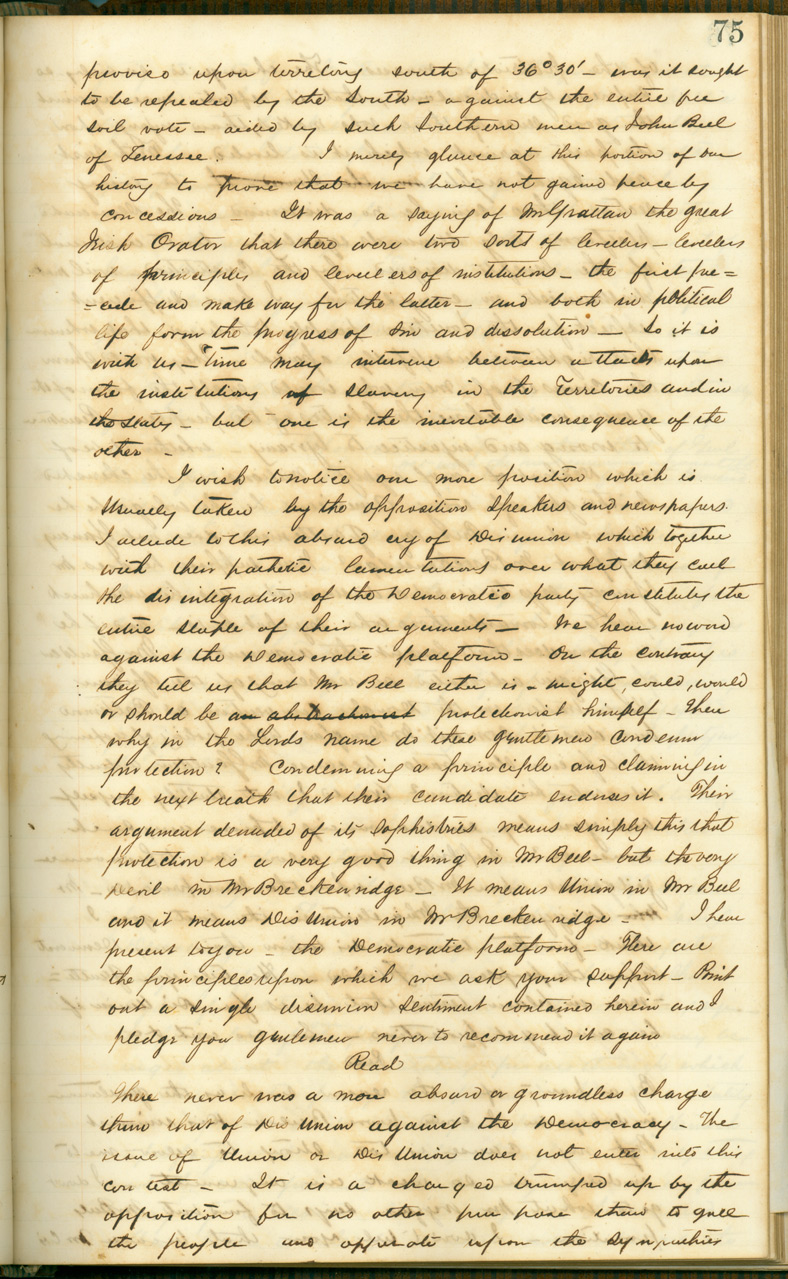 75
proviso upon territory south of 36° 30' - was it sought
to be repealed by the South - against the entire free
soil vote - aided by such Southern men as John Bell
of Tenessee. I merely glance at this portion of our
history to prove that we have not gained peace by
concessions - It was a saying of Mr Grattan the great
Irish Orator that there were two sorts of levellers - levelers
of principles and levellers of institutions - the first pre=
=cede and make way for the latter - and both in political
life form the progress of Sin and dissolution - So it is
with us - Time may intervene between attacks upon
the institutions of Slavery in the Territories and in
the States - but one is the inevitable consequence of the
other -
I wish to notice one more position which is
Usually taken by the opposition Speakers and newspapers.
I allude to this absurd cry of Disunion which together
with their pathetic lamentations over what they call
the disintegration of the Democratic party constitutes the
entire staple of their arguments - We hear no word
against the Democratic platform - On the contrary
they tell us that Mr Bell either is - might, could, would
or should be an abstractionist protectionist himself - Then
why in the Lords name do these gentlemen condemn
protection? Condemning a principle and claiming in
the next breath that their candidate endorses it. Their
argument denuded of its Sophistries means simply this that
protection is a very good thing in Mr Bell - but the very
Devil in Mr Breckenridge - It means Union in Mr Bell
and it means DisUnion in Mr Breckenridge - I here
present to you - the Democratic platform - There are
the principles upon which we ask your support - Point
out a single disunion Sentiment contained herein and I
pledge you gentlemen never to recommend it again
Read
There never was a more absurd or groundless charge
than that of DisUnion against the Democracy - The
issue of Union or DisUnion does not enter into this
contest - It is a charged trumped up by the
opposition for no other purpose than to gull
the people and opperate upon the Sympathies